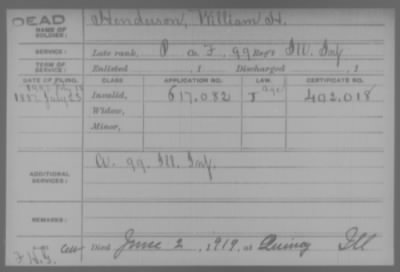 DEAD
NAME OF SOLDIER: Henderson, William H.
SERVICE: Late rank, P Co F, 99 Reg't Ill. Inf.
TERM OF SERVICE: Enlisted , 1 Discharged , 1
DATE OF FILING. CLASS APPLICATION NO. LAW. CERTIFICATE NO.
1887 July 23 Invalid, 617.082 J age 402.018
Widow,
Minor,
ADDITIONAL SERVICES: 99. Ill. Inf.
REMARKS:
Died June 2, 1919, at Quincy Ill